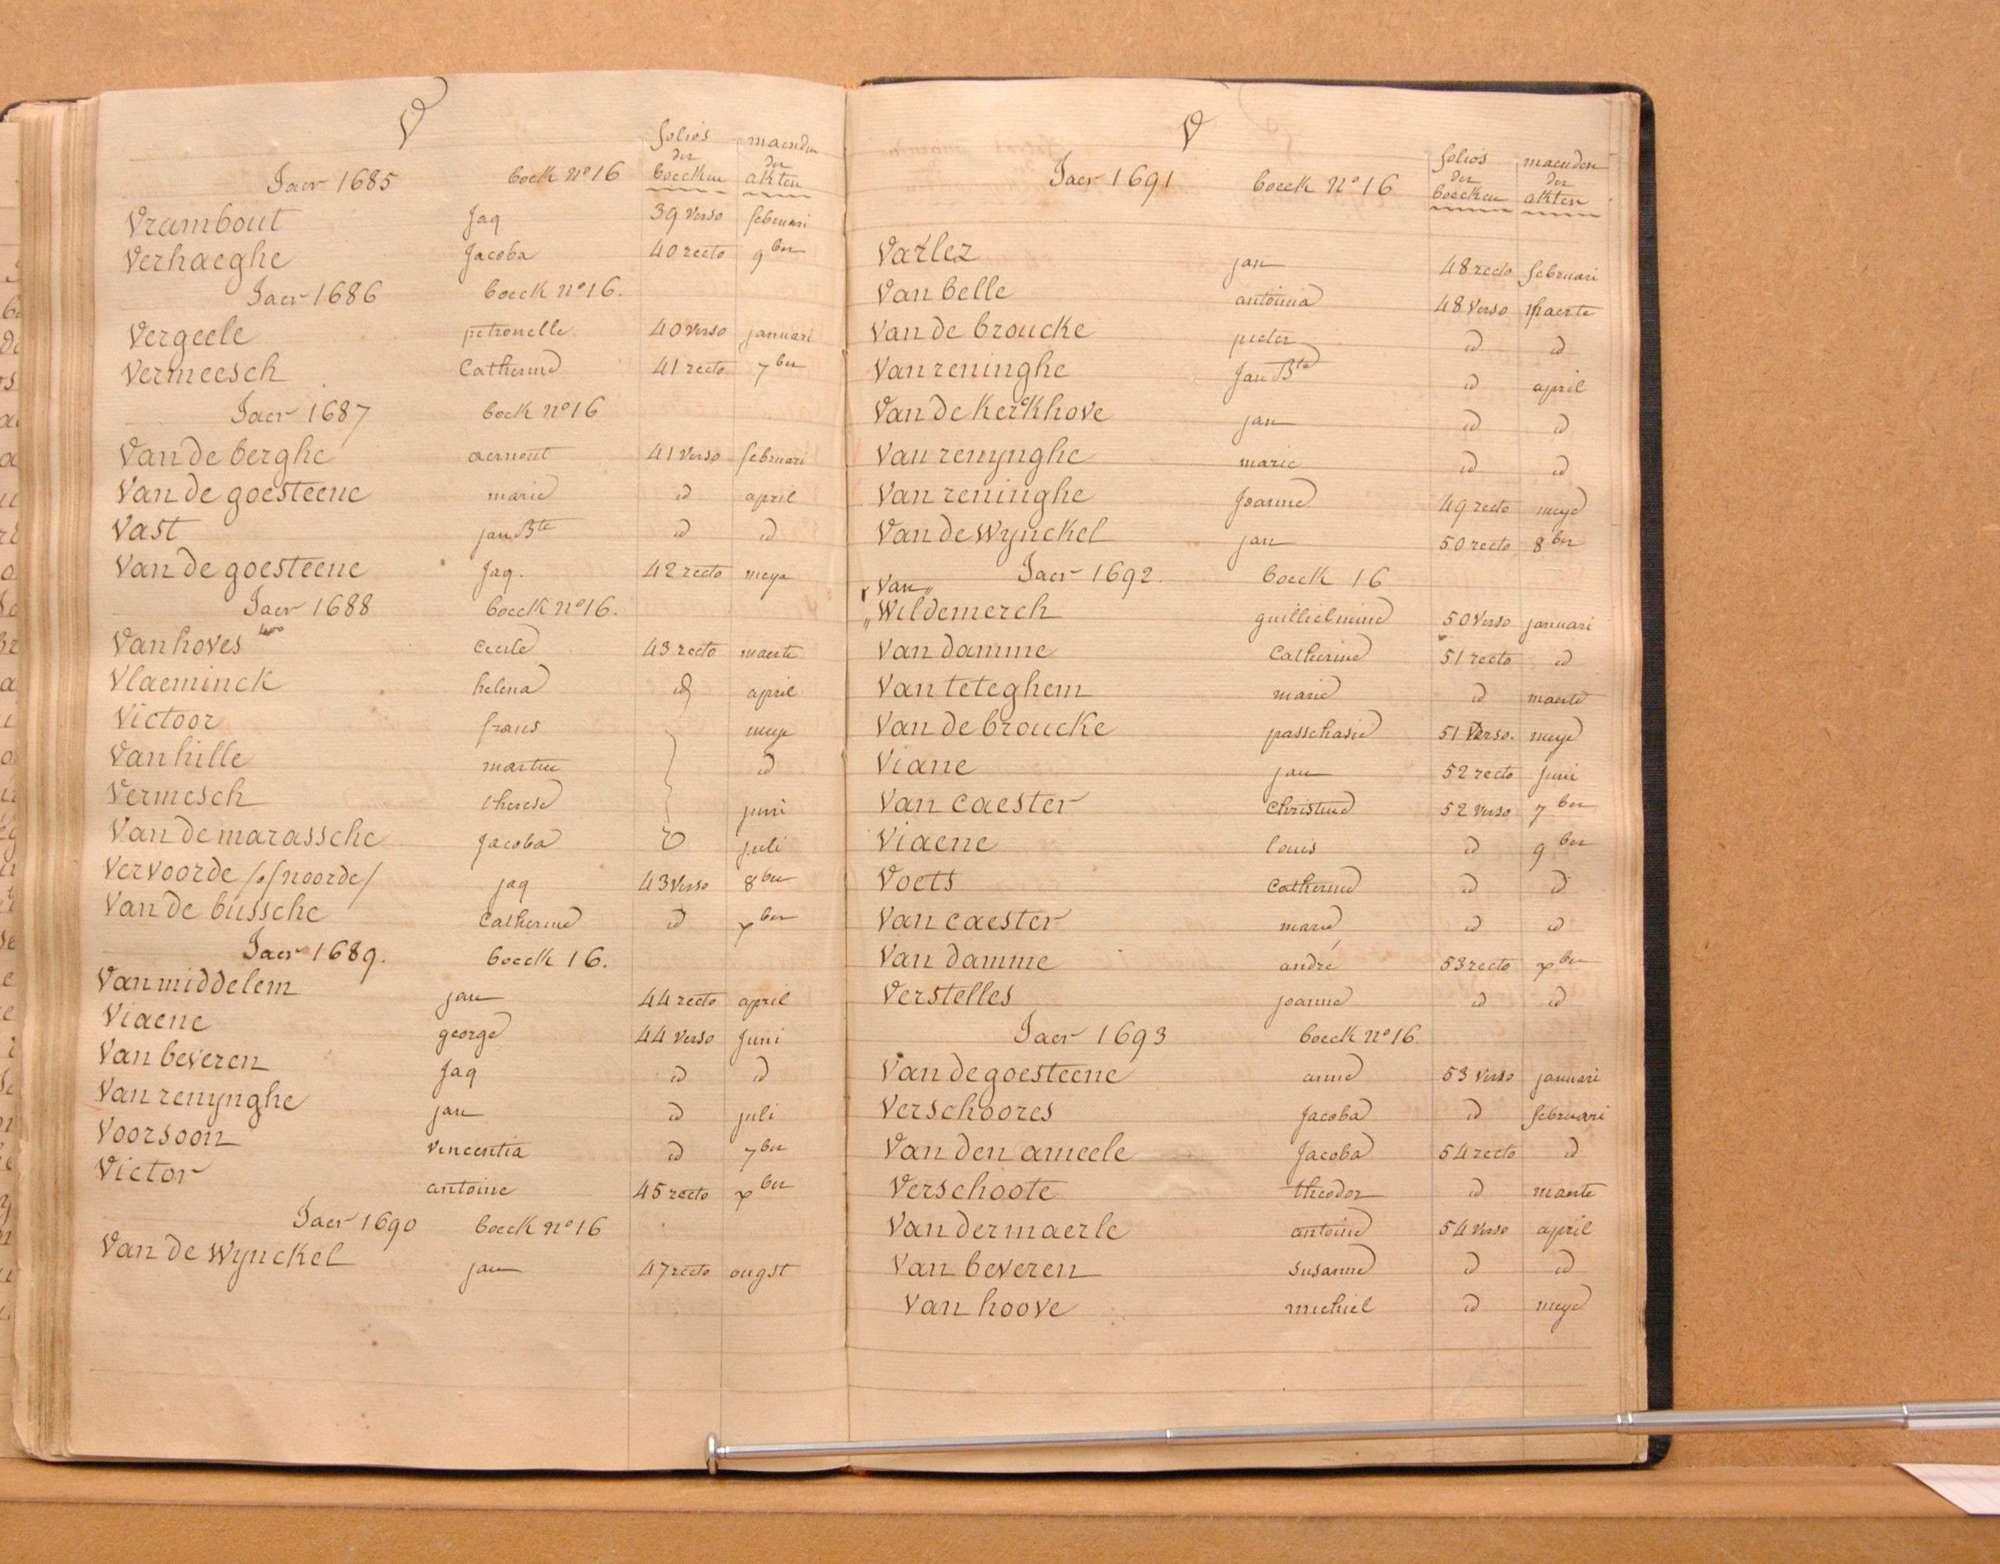 V
folios der boecken
maenden der akten
Jaer 1685 boeck nº 16
Vrambout Jaq 39 verso februari
Verhaeghe Jacoba 40 recto 9ber
Jaer 1686 boeck nº 16.
Vergeele petronelle 40 verso januari
Vermeesch Catherine 41 recto 7ber
Jaer 1687 boek nº 16
Van de berghe aernout 41 verso februari
Van de goesteene marie id april
Vast jan Bte id id
Van de goesteene Jaq. 42 recto meye
Jaer 1688 boeck nº 16.
Van hoves Cecile 43 recto maerte
Vlaeminck helena id april
Victoor frans meye
Van hille martin id
Vermesch therese juni
Van de marassche Jacoba juli
Vervoorde /of noorde/ jaq 43 verso 8ber
Van de bussche Catherine id xber
Jaer 1689. boeck 16.
Van middelem jan 44 recto april
Viaene george 44 verso Juni
Van beveren Jaq id id
Van renynghe jan id juli
Voorsoon vincentia id 7ber
Victor antoine 45 recto xber
Jaer 1690 boeck nº 16
Van de Wynckel jan 47 recto ougst
V
folios der boecken
maenden der akten
Jaer 1691 boeck Nº 16
Varlez jan 48 recto februari
Van belle antonia 48 verso maerte
Van de broucke pieter id id
Van reninghe Jan Bte id april
Van de kerkhove jan id id
Van renynghe marie id id
Van reninghe Joanne 49 recto meye
Van de Wynckel jan 50 recto 8ber
Jaer 1692. boeck 16
„ Van „
„ Wildemerch guillielmine 50 verso januari
Van damme Catherine 51 recto id
Van teteghem marie id maerte
Van de broucke passchasie 51 verso. meye
Viane jan 52 recto juni
Van caester Christine 52 verso 7ber
Viaene louis id 9ber
Voets Catherine id id
Van caester marie id id
Van damme andré 53 recto xber
Verstelles joanne id id
Jaer 1693 boeck nº 16.
Van de goesteene anne 53 verso januari
Verschoores Jacoba id februari
Van den ameele Jacoba 54 recto id
Verschoote theodor id maerte
Van der maerle antoine 54 verso april
Van beveren Susanne id id
Van hoove michiel id meye